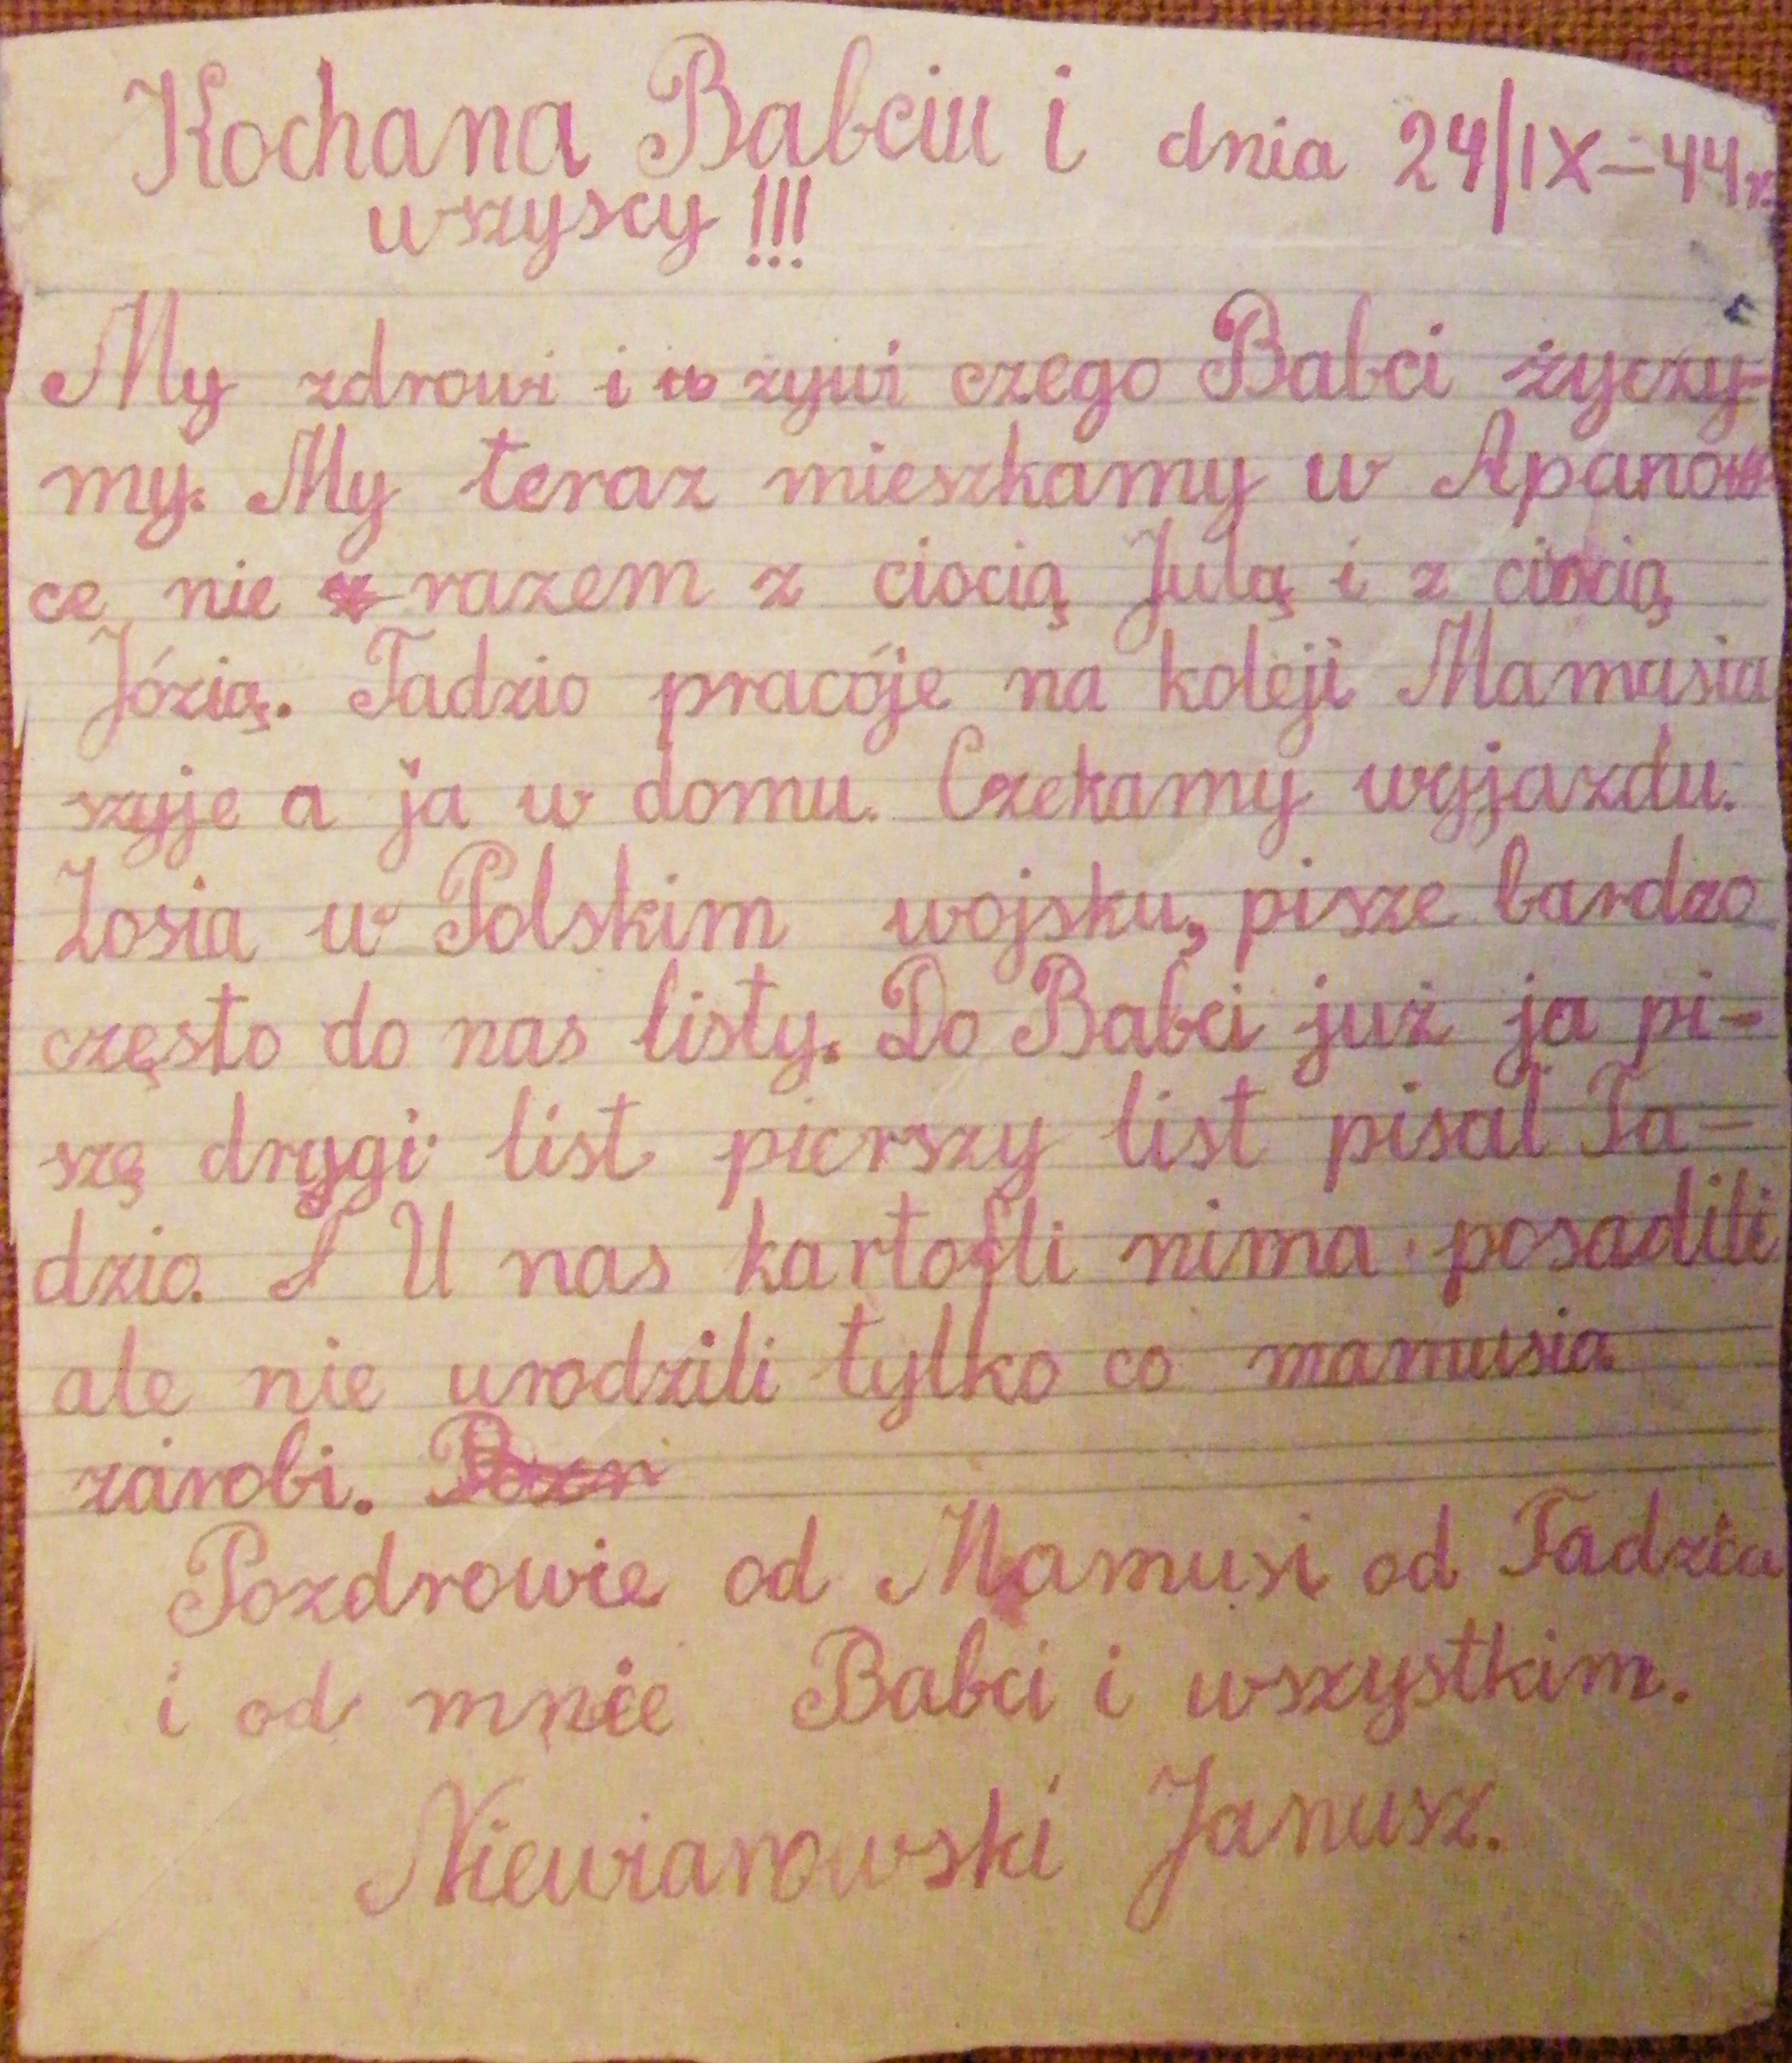 Kochana Babciu i dnia 24/IX-44r.
wszyscy !!!
My zdrowi i żywi czego Babci życzy-
my. My teraz mieszkamy w Apanow
ce nie razem z ciocią Julą i z ciocią
Józią. Tadzio pracóje na koleji Mamusia
szyje a ja w domu. Czekamy wyjazdu.
Zosia w Polskim wojsku, pisze bardzo
często do nas listy. Do Babci już ja pi-
szę drygi list pierszy list pisal Ta-
dzio. U nas kartofli nima posadili
ale nie urodzili tylko co mamusia
zarobi.
Pozdrowie od Mamusi od Tadzia
i od mnie Babci i wszystkim.
Niewiarowski Janusz.